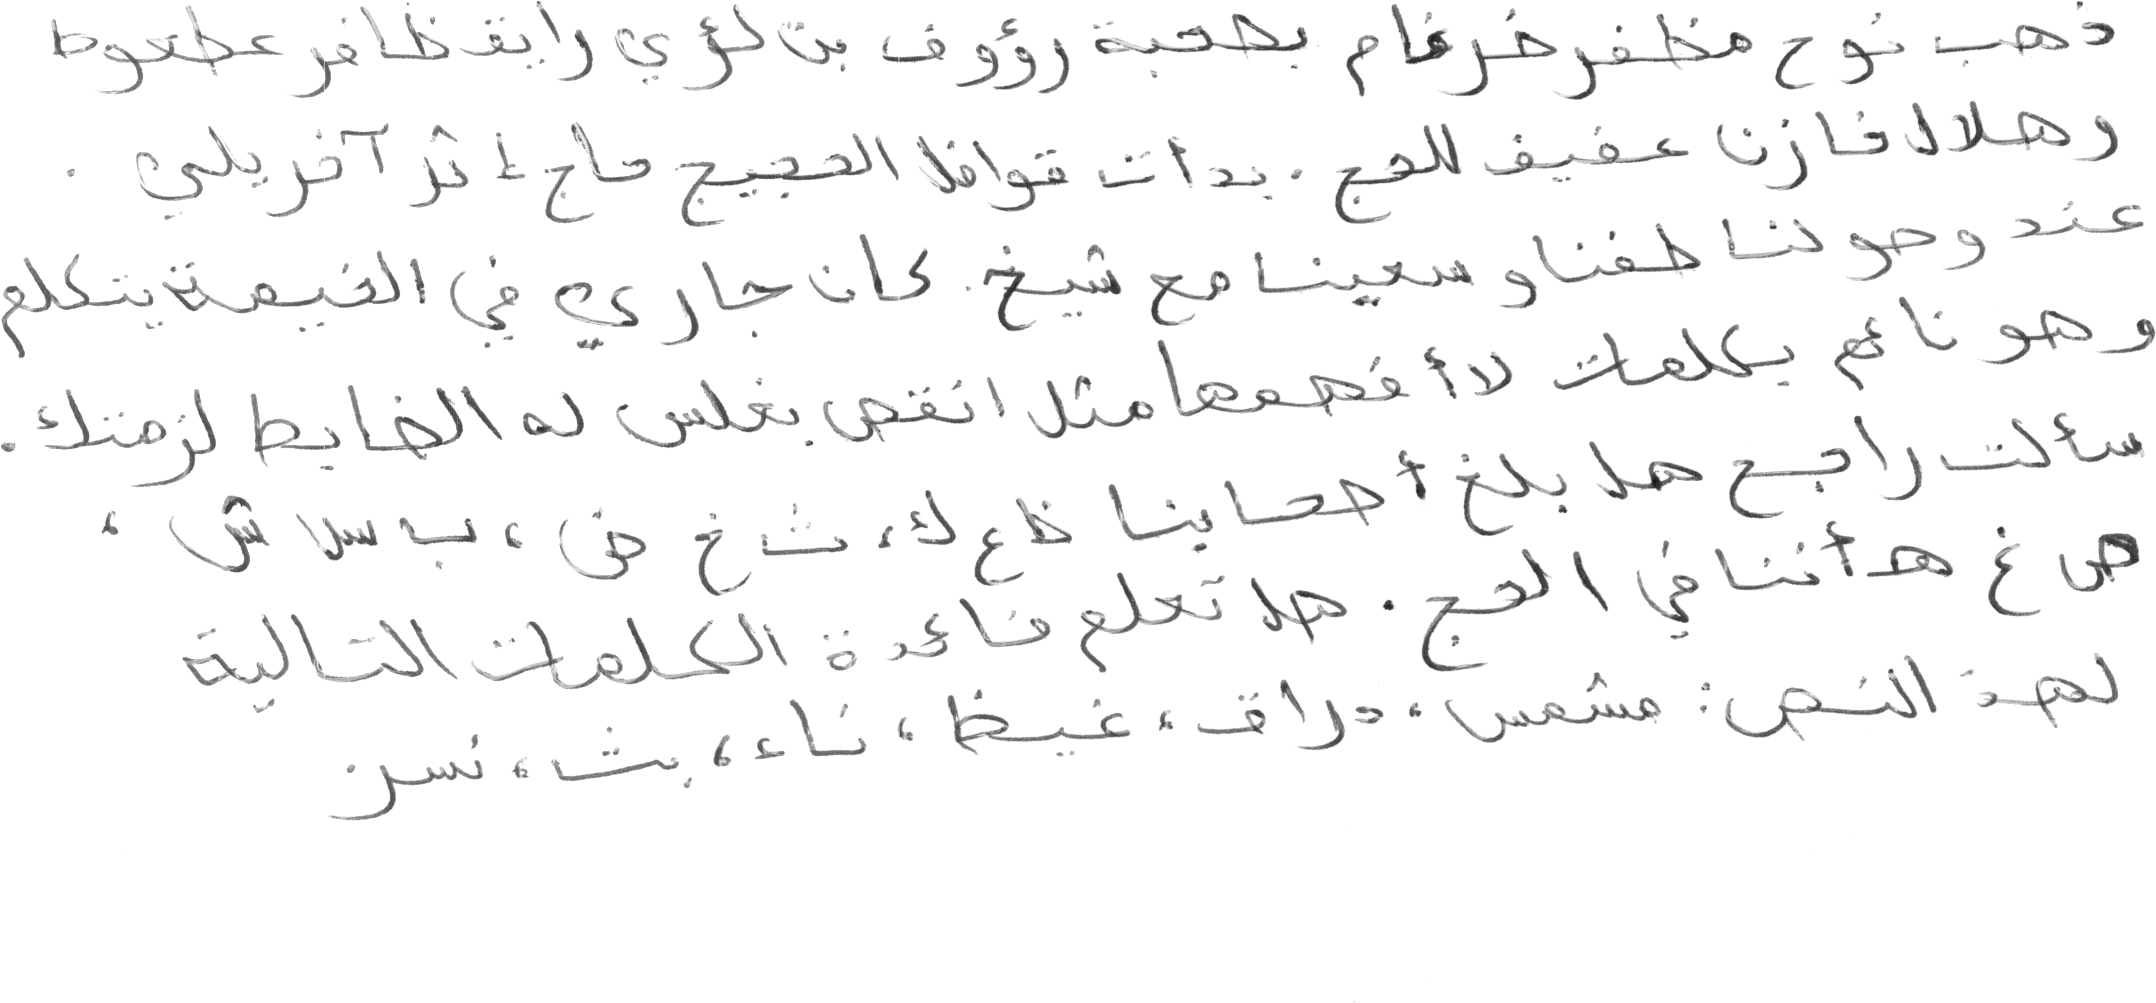 ذهب نوح مظفر ضرغام بصحبة رؤوف بن لؤي رايق ظافر عطعوط
وهلال فازن عفيف للحج . بدأت قوافل الحجيج حاج إثر آخر يلي .
عند وصولنا طفنا وسعينا مع شيخ . كان جاري في الخيمة يتكلم
وهو نائم بكلمات لا أفهمها مثل انقض بغلس له الضابط لزمتك .
سألت راجح هل بلغ أصحابنا ظع ك، ث خ ض ، ب سلا ش ،
ص غ هدأننا في الحج . هل تعلم فائدة الكلمات التالية
لهذ النص : مشمس ، دراق ، غيظ ، ناء ، بث ، نسر